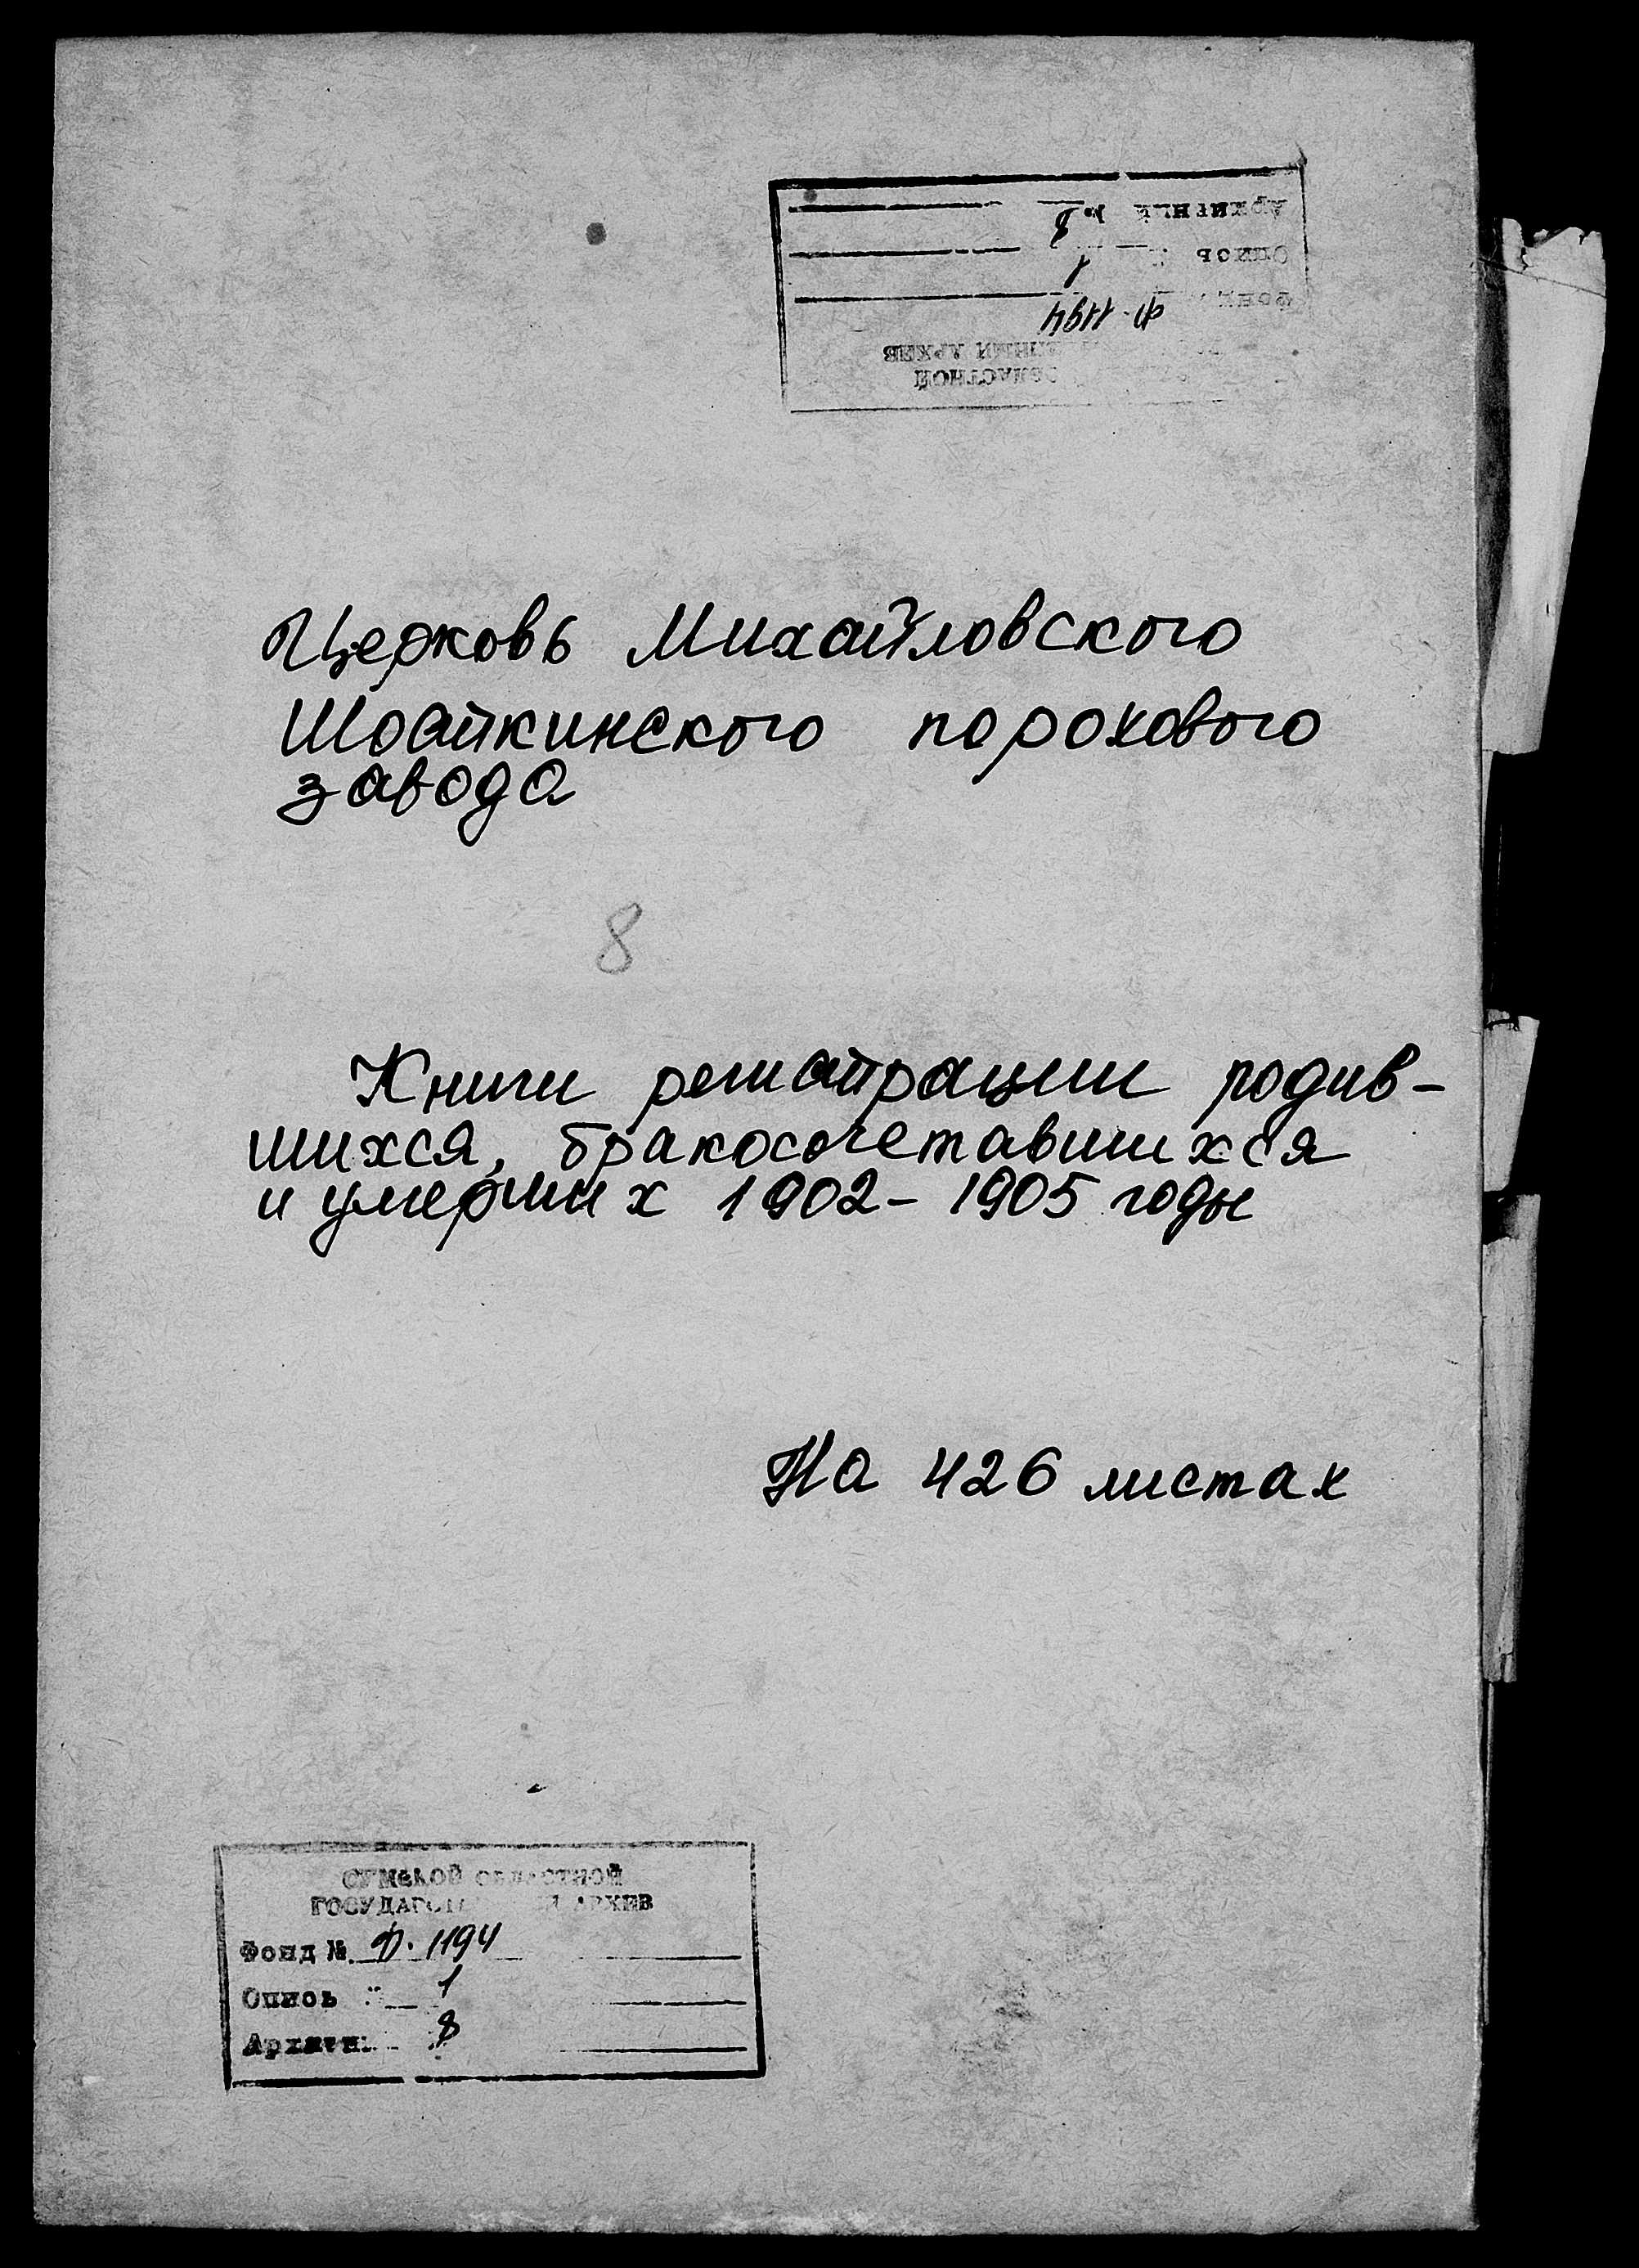 Архивный № 8
Опись 1
Фонд Ф. 1194
ОБЛАСТНОЙ
АРХИВ
Церковь Михайловского
Шосткинского порохового
завода
8
Книги регистрации родив-
шихся, бракосочетавшихся
и умерших 1902-1905 годы
На 426 листах
СУМСКОЙ ОБЛАСТНОЙ
ГОСУДАРСТВЕННЫЙ АРХИВ
Фонд № Ф. 1194
Опись 1
Архивн. 8